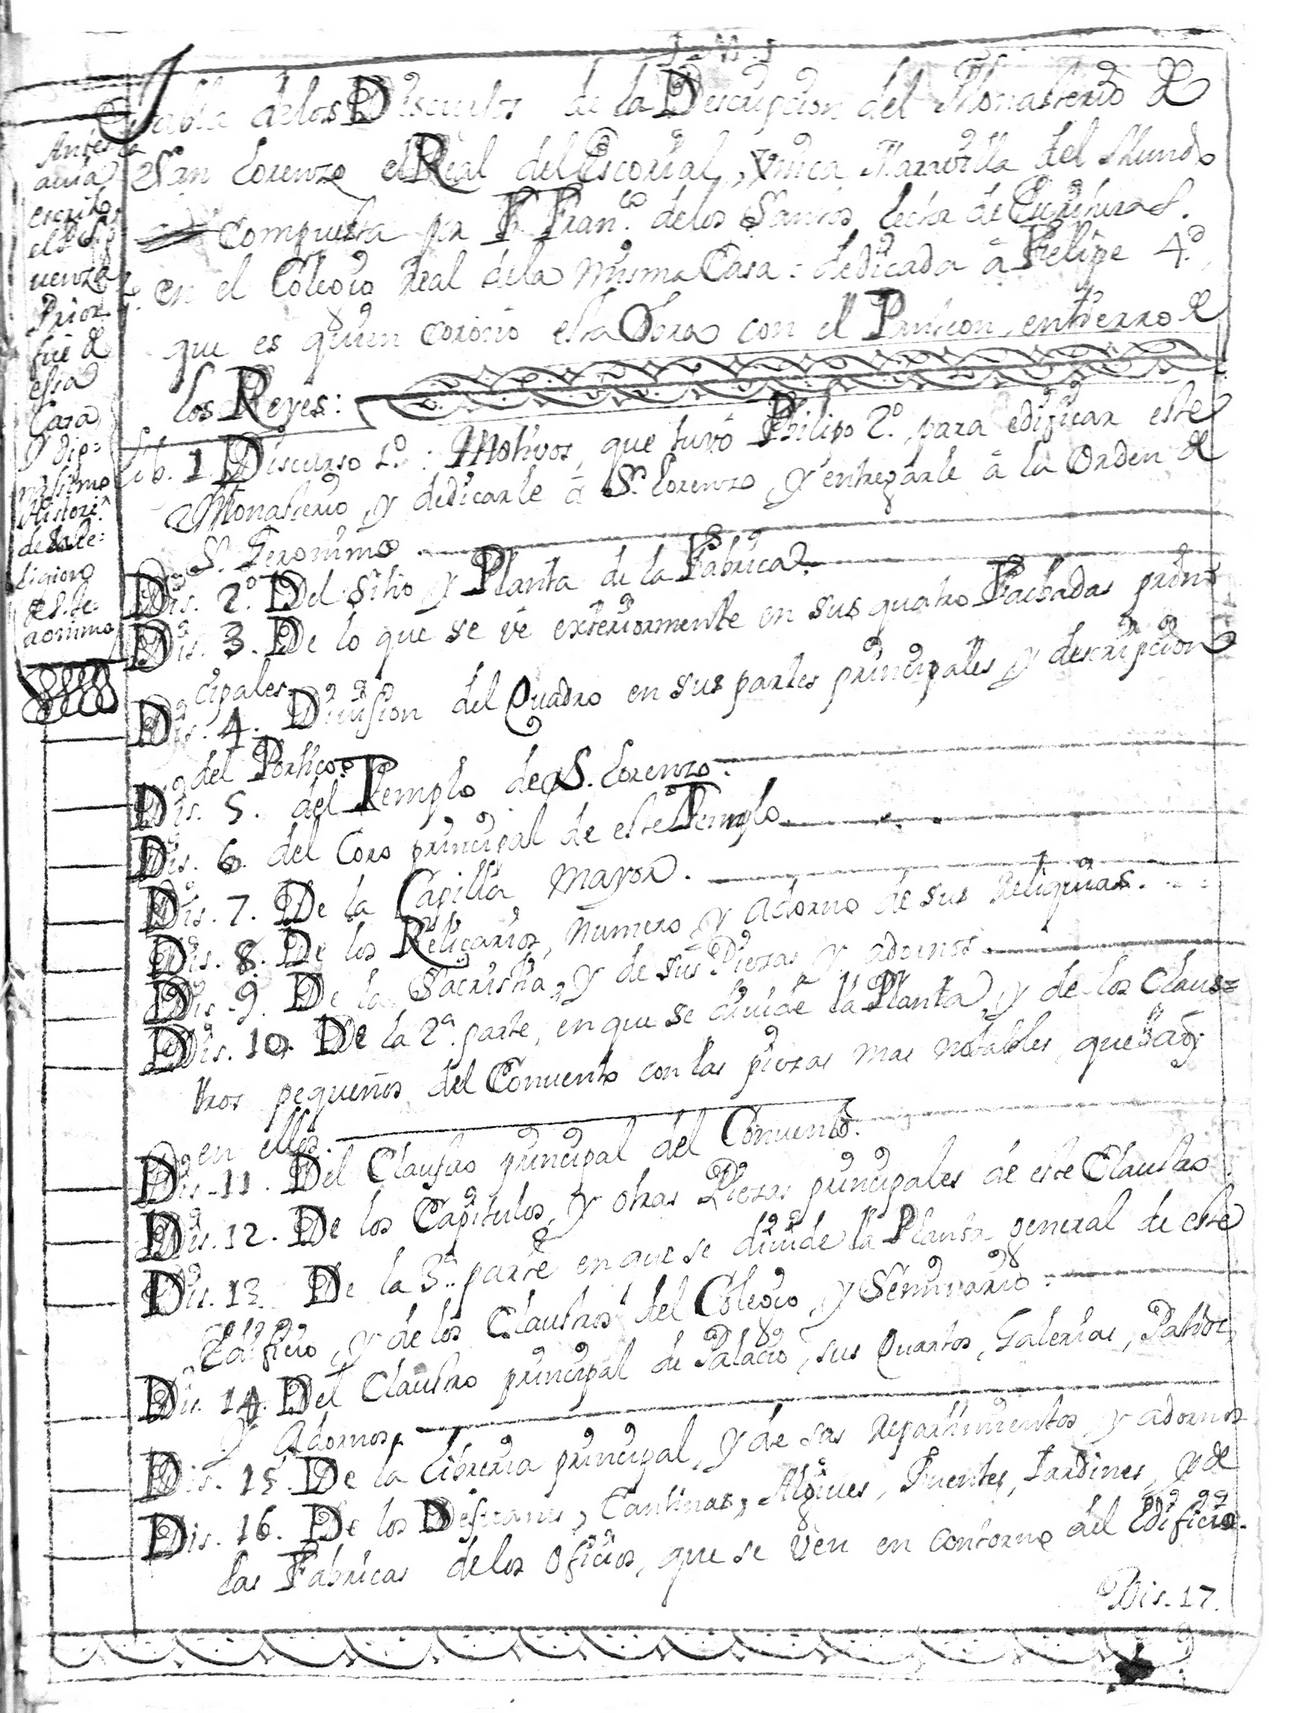 Tabla de los Discursos de la Descripcion del Monasterio de
San Lorenzo el Real del Escorial, Vnica Maravilla del Mundo
Compuesta por Fr. Franco. de los Santos, Lector de Escritura S.
en el Colegio Real de la misma Casa: dedicada â Felipe 4.º,
que es quien coronò esta Obra con el Panteon, entierro de
los Reyes:
Antes la
avia
escrito
el P. Sig
uenza
Prior q.
fue de
esta
Casa
Y dig=
nissimo
Histori.
de la Re=
ligion
de S. Ge=
ronimo
Lib. 1 Discurso 1.º: Motivos, que tuvo Philipo 2.º para edificar este
Monasterio, y dedicarle â S. Lorenzo, y entregarle â la Orden de
S. Geronimo
Dis. 2.º Del Sitio y Planta de la Fabrica.
Dis. 3. De lo que se vé exteriormente en sus quatro Fachadas prin
cipales
Dis. 4. Division del Quadro en sus partes principales, y descripcion
del Portico.
Dis. 5. del Templo de S. Lorenzo.
Dis. 6. del Coro principal de este Templo
Dis. 7. De la Capilla Mayor.
Dis. 8. De los Relicarios, numero, y adorno de sus Reliquias.
Dis. 9. De la Sacristia, y de sus Piezas y adornos
Dis. 10. De la 2.ª parte, en que se divide la Planta, y de los Claus=
tros pequeños del Convento con las piezas mas notables, que hay
en ellos.
Dis. 11. Del Claustro principal del Convento.
Dis. 12. De los Capitulos, y otras Piezas principales de este Claustro
Dis. 13. De la 3.ª parte en que se divide la Planta general de este
Edificio, y de los Claustros del Colegio, y Seminario.
Dis. 14. Del Claustro principal de Palacio, sus Quartos, Galerias, Patios,
y Adornos.
Dis. 15. De la Libreria principal, y de sus repartimientos y adornos
Dis. 16. De los Desvanes, Cantinas, Algives, Fuentes, Jardines, y de
las Fabricas de los Oficios, que se ven en contorno del Edificio.
Dis. 17.